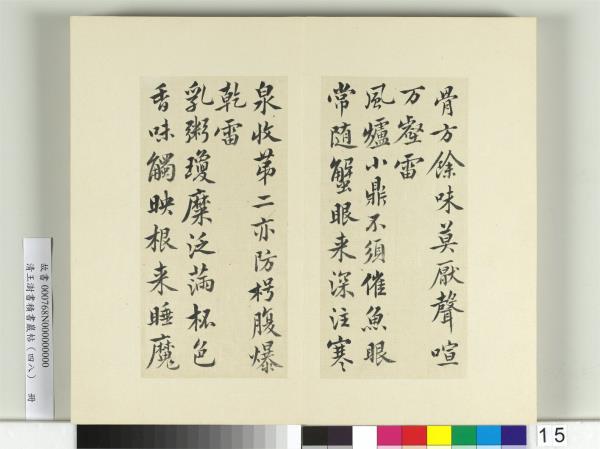 骨方餘味莫厭聲喧
万壑雷
風爐小鼎不須催魚眼
常随蟹眼来深注寒
泉收苐二亦防枵腹爆
乾雷
乳粥瓊糜泛滿杯色
香味觸映根来睡魔
故書 000768N000000000
清王澍書積書巖帖(四八) 冊
15